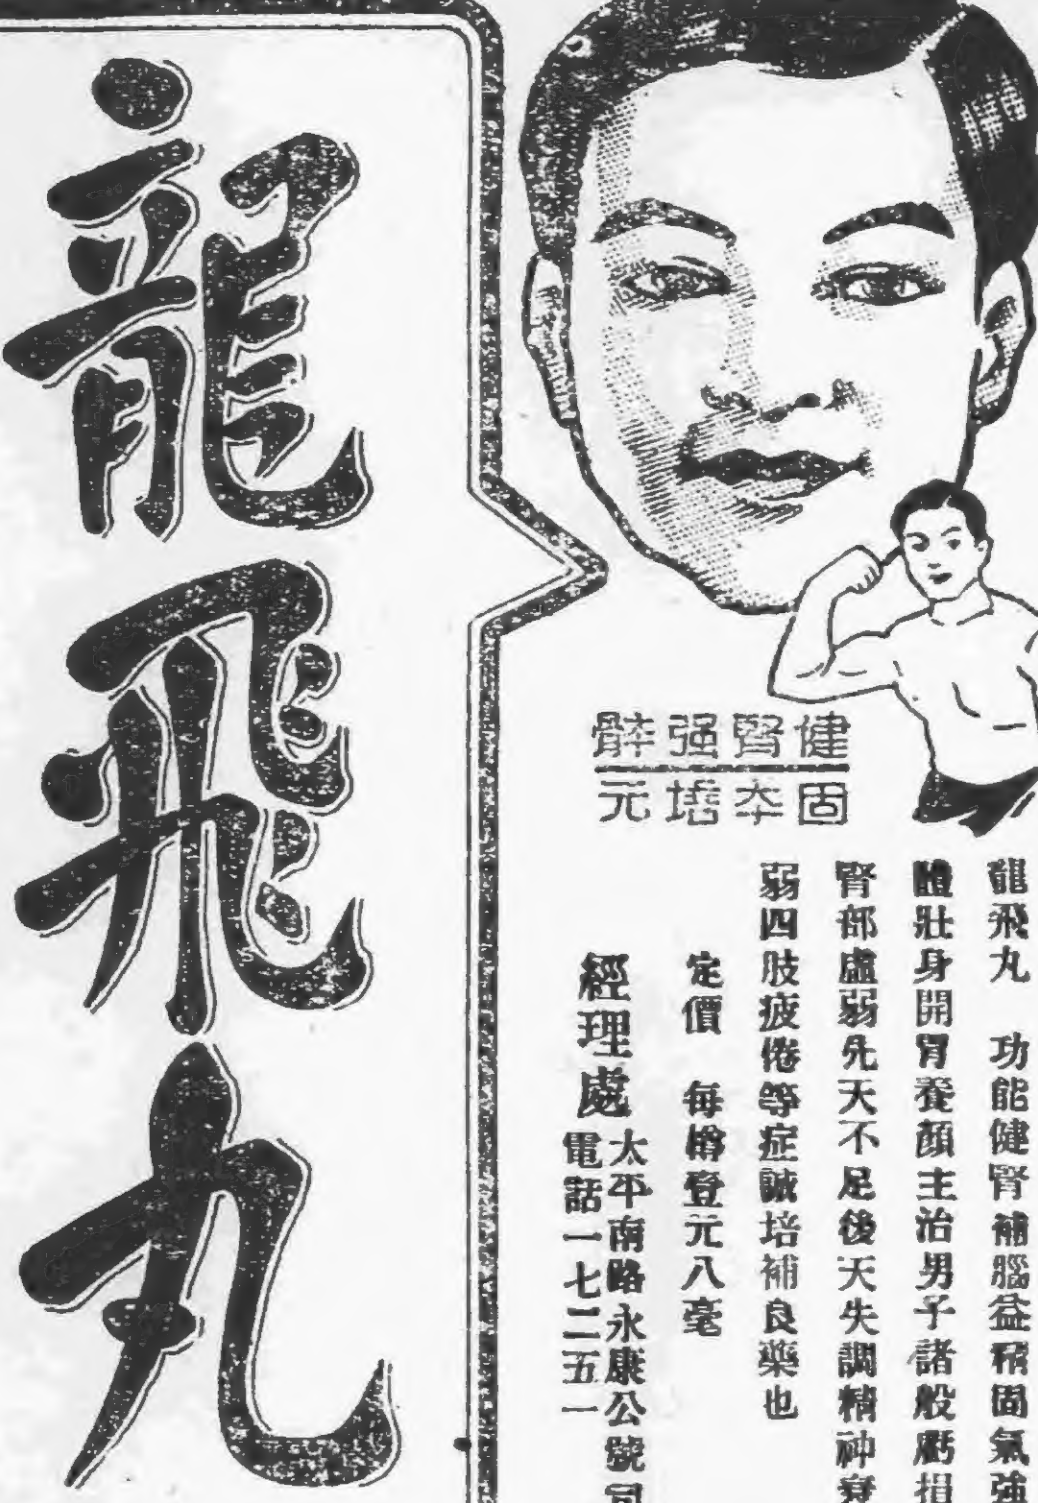 龍飛丸
健腎强骵
固夲培元
龍飛丸 功能健腎補腦益精固氣強
體壯身開胃養顏主治男子諸般虧損
腎部虛弱先天不足後天失調精神衰
弱四肢疲倦等症誠培補良藥也
定價 每樽登元八毫
經理處
太平南路永康公號司
電話一七二五一